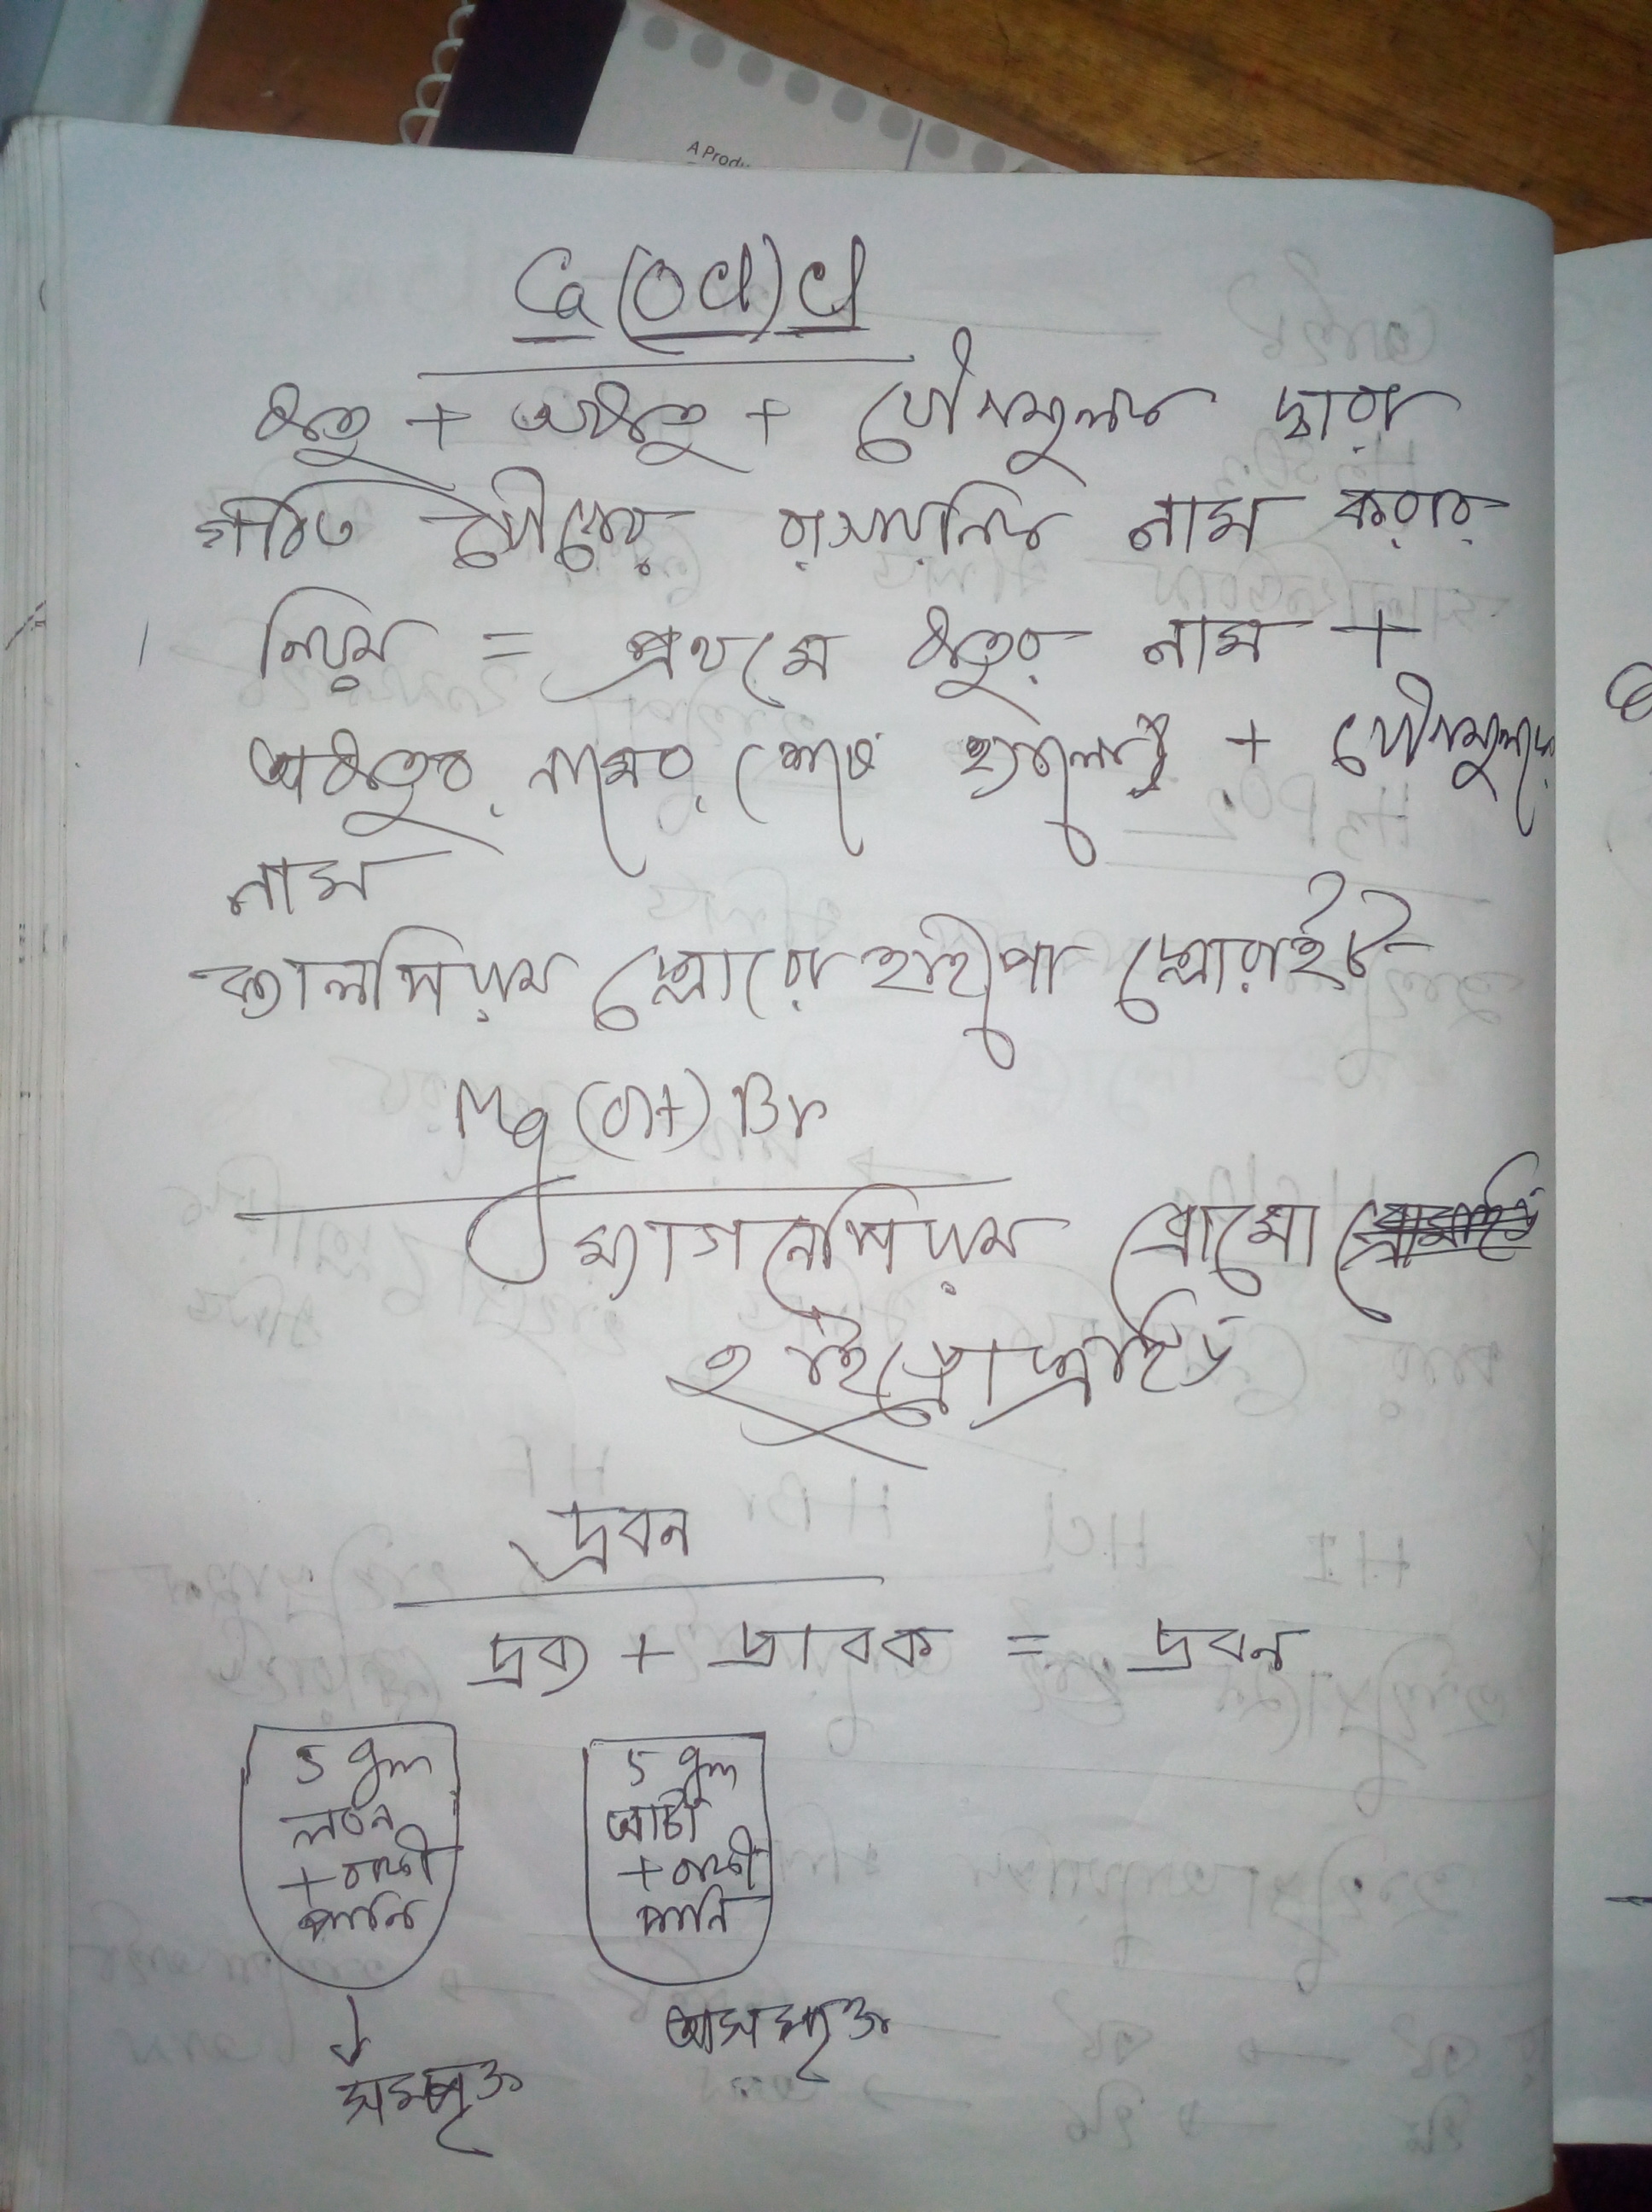 A Produ
Ca(OCl)Cl
ধাতু + অধাতু + যৌগমূলক দ্বারা
গঠিত যৌগের রসায়নিক নাম করার
নিয়ম = প্রথমে ধাতুর নাম +
অধাতুর নামের শেষে + যৌগমূলকের
নাম
ক্যালসিয়াম ক্লোরো হাইপো ক্লোরাইট
Mg(OH)Br
ম্যাগনেসিয়াম ব্রোমো
হাইড্রোক্সাইড
দ্রবন
দ্রব্য + দ্রাবক = দ্রবন
5 gm
লবন
+ বাকী
পানি
5 gm
আটা
+ বাকী
পানি
অসমপৃক্ত
সমপৃক্ত